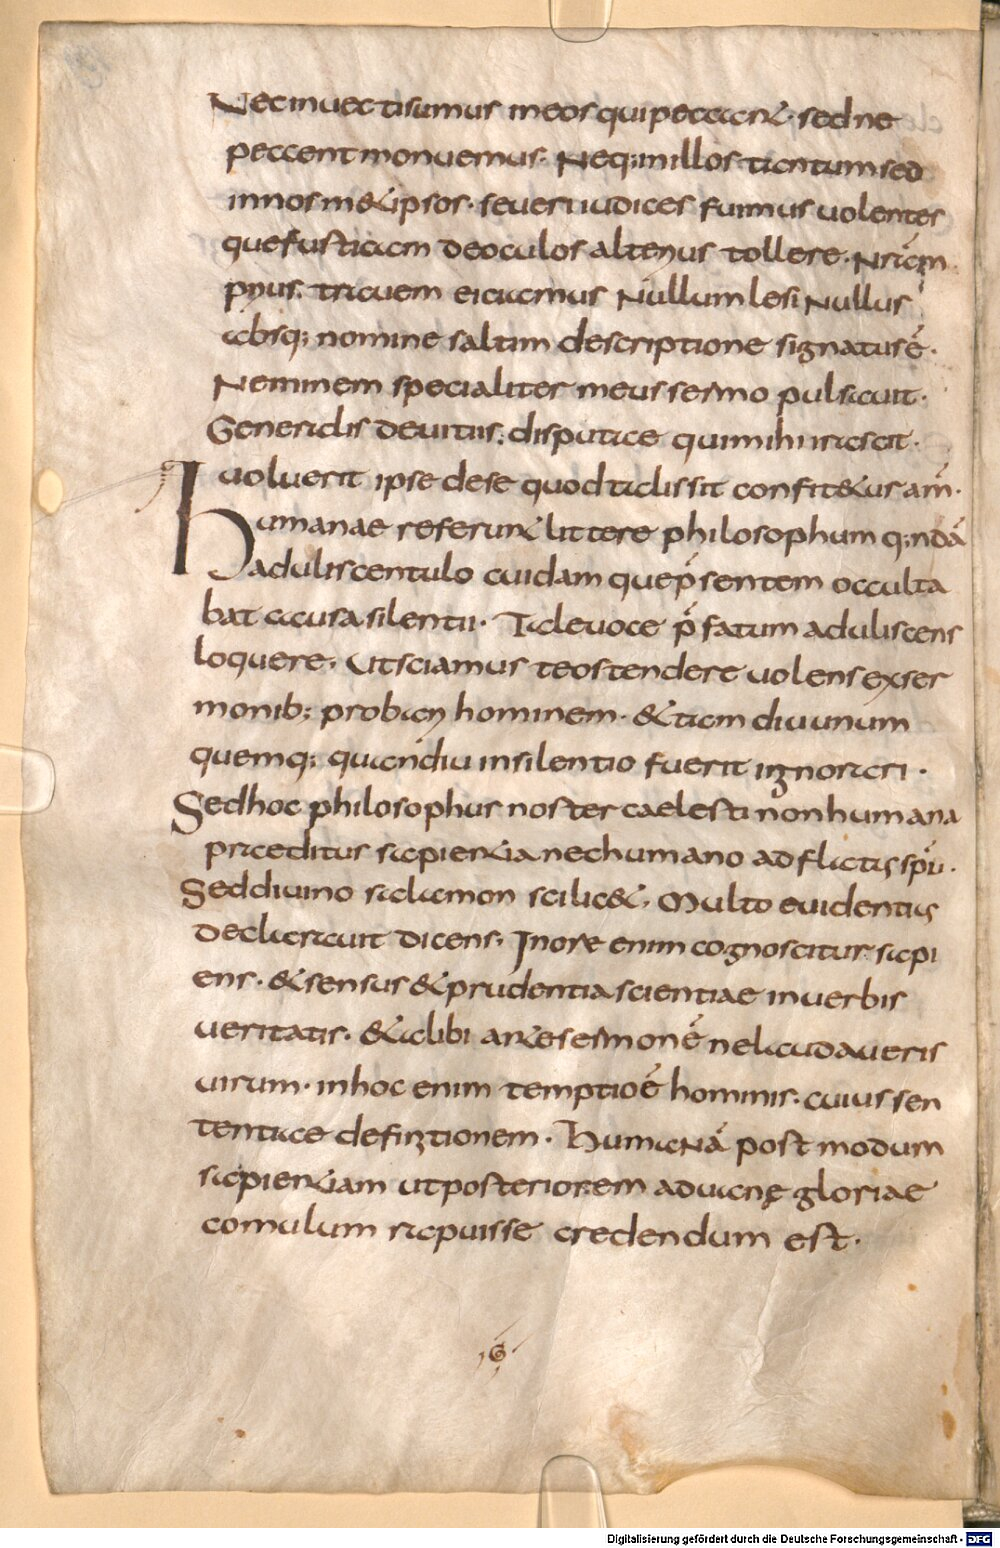 Nec inuecti sumus in eos qui peccant. sed ne
peccent monuemus. Neq; in illos tantum sed
in nos m& ipsos. seueri iudices fuimus uolentes
que fusticam de oculos alterius tollere. Nrām
prius. trauem eiciamus Nullum lesi Nullus
absq; nomine saltim descriptione signatus ē.
Neminem specialiter meus sermo pulsauit.
Generalis de uitiis. disputace qui mihi irasci.
uoluerit ipse de se quod talis sit confit&ur am̄.
Humanae referunt littere philosophum q;ndā
aduliscentulo cuidam que p̄sentem occulta
bat causa silentii. Tale uoce p̄fatum aduliscens
loquere. Ut sciamus te ostendere uolens ex ser
monib; probari hominem. &iam diuinum
quemq; quandiu in silentio fuerit ignorari.
Sed hoc philosophus noster caelesti non humana
praeditus sapientia nec humano ad flictus spū.
Sed diuino salamon scilic&. Multo euidentius
declarauit dicens. In ore enim cognoscitur sapi
ens. & sensus & prudentia scientiae in uerbis
ueritatis. & alibi ante sermonē ne laudaueris
uirum. in hoc enim temptio ē hominis. cuius sen
tentiae definitionem. Humanā post modum
sapientiam ut posteriorem ad uanę gloriae
comulum rapuisse credendum est.
G
Digitalisierung gefördert durch die Deutsche Forschungsgemeinschaft - DFG